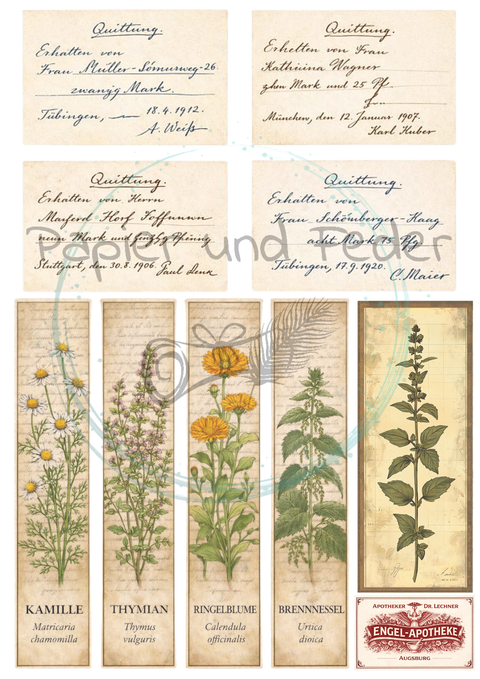 Quittung.
Erhalten von
Frau Müller-Sömusweg-26.
zwanzig Mark.
Tübingen, 18.4.1912.
A. Weiß
Quittung.
Erhelten von Frau
Kathinina Wagner
zhen Mark und 25 Pf.
München, den 12. Januar 1907.
Karl Huber
Quittung.
Erhalten von Herrn
neun Mark und Pfennig
Stuttgart, den 30.8.1906.
Paul Lenz
Quittung.
Erhalten von
Frau Schömberger-Haag
acht Mark 75 Pfg
Tübingen, 17.9.1920.
C. Maier
Papier und Feder
KAMILLE
Matricaria
chamomilla
THYMIAN
Thymus
vulguris
RINGELBLUME
Calendula
officinalis
BRENNNESSEL
Urtica
dioica
APOTHEKER DR. LECHNER
ENGEL-APOTHEKE
AUGSBURG